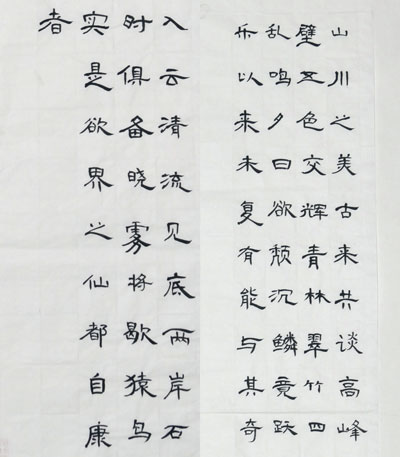 山川之美古来共谈高峰
入云清流见底两岸石
壁五色交辉青林翠竹四
时俱备晓雾将歇猿鸟
乱鸣夕日欲颓沉鳞竟跃
实是欲界之仙都自康
乐以来未复有能与其奇
者